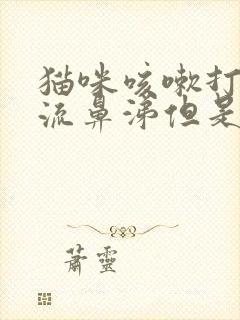 猫咪咳嗽打
流鼻涕但是
萧靈